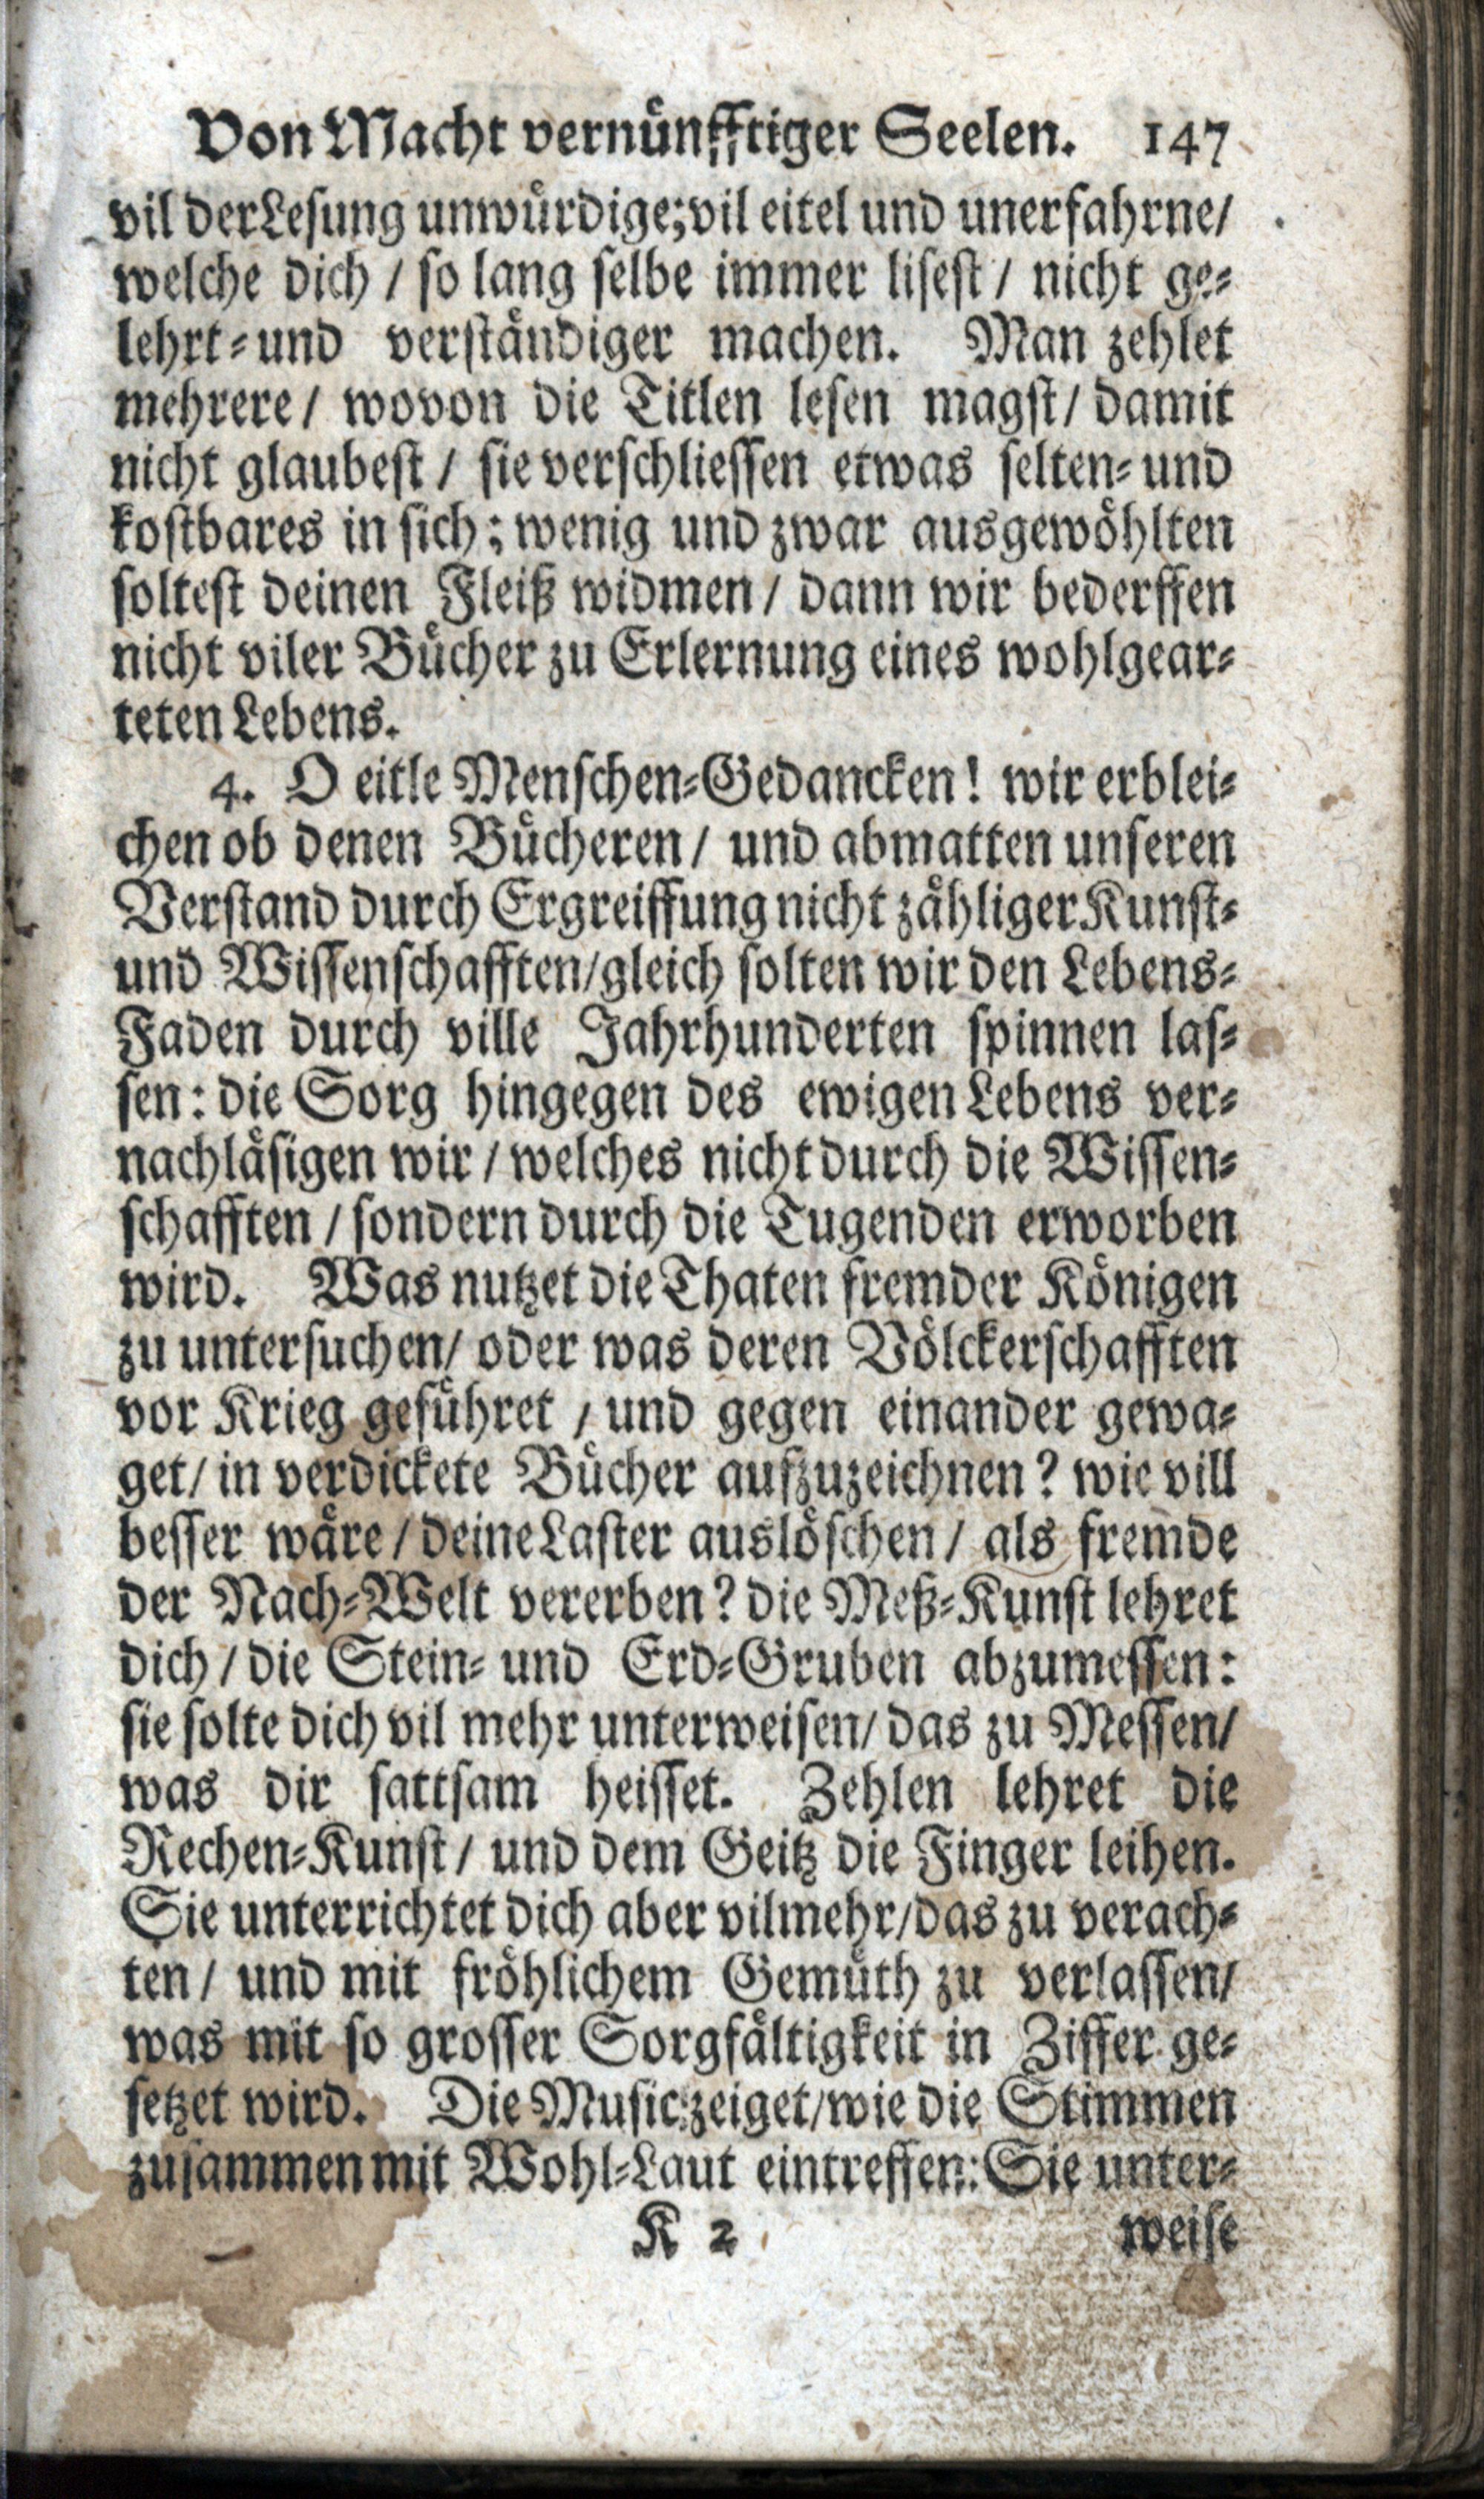 Von Macht vernünfftiger Seelen. 147
vil der Lesung unwürdige; vil eitel und unerfahrne/
welche dich / so lang selbe immer lisest / nicht ge-
lehrt- und verständiger machen. Man zehlet
mehrere / wovon die Titlen lesen magst / damit
nicht glaubest / sie verschliessen etwas selten- und
kostbares in sich; wenig und zwar ausgewöhlten
soltest deinen Fleiß widmen / dann wir bederffen
nicht viler Bücher zu Erlernung eines wohlgear-
teten Lebens.
4. O eitle Menschen-Gedancken! wir erblei-
chen ob denen Bücheren / und abmatten unseren
Verstand durch Ergreiffung nicht zähliger Kunst-
und Wissenschafften/gleich solten wir den Lebens-
Faden durch ville Jahrhunderten spinnen las-
sen: die Sorg hingegen des ewigen Lebens ver-
nachläsigen wir / welches nicht durch die Wissen-
schafften / sondern durch die Tugenden erworben
wird. Was nutzet die Thaten fremder Königen
zu untersuchen/ oder was deren Völckerschafften
vor Krieg geführet / und gegen einander gewa-
get/ in verdickete Bücher aufzuzeichnen? wie vill
besser wäre / deine Laster auslöschen / als fremde
der Nach-Welt vererben? die Meß-Kunst lehret
dich / die Stein- und Erd-Gruben abzumessen:
sie solte dich vil mehr unterweisen/ das zu Messen/
was dir sattsam heisset. Zehlen lehret die
Rechen-Kunst / und dem Geitz die Finger leihen.
Sie unterrichtet dich aber vilmehr/das zu verach-
ten / und mit fröhlichem Gemüth zu verlassen/
was mit so grosser Sorgfältigkeit in Ziffer ge-
setzet wird. Die Music zeiget/wie die Stimmen
zusammen mit Wohl-Laut eintreffen: Sie unter-
K 2 weise